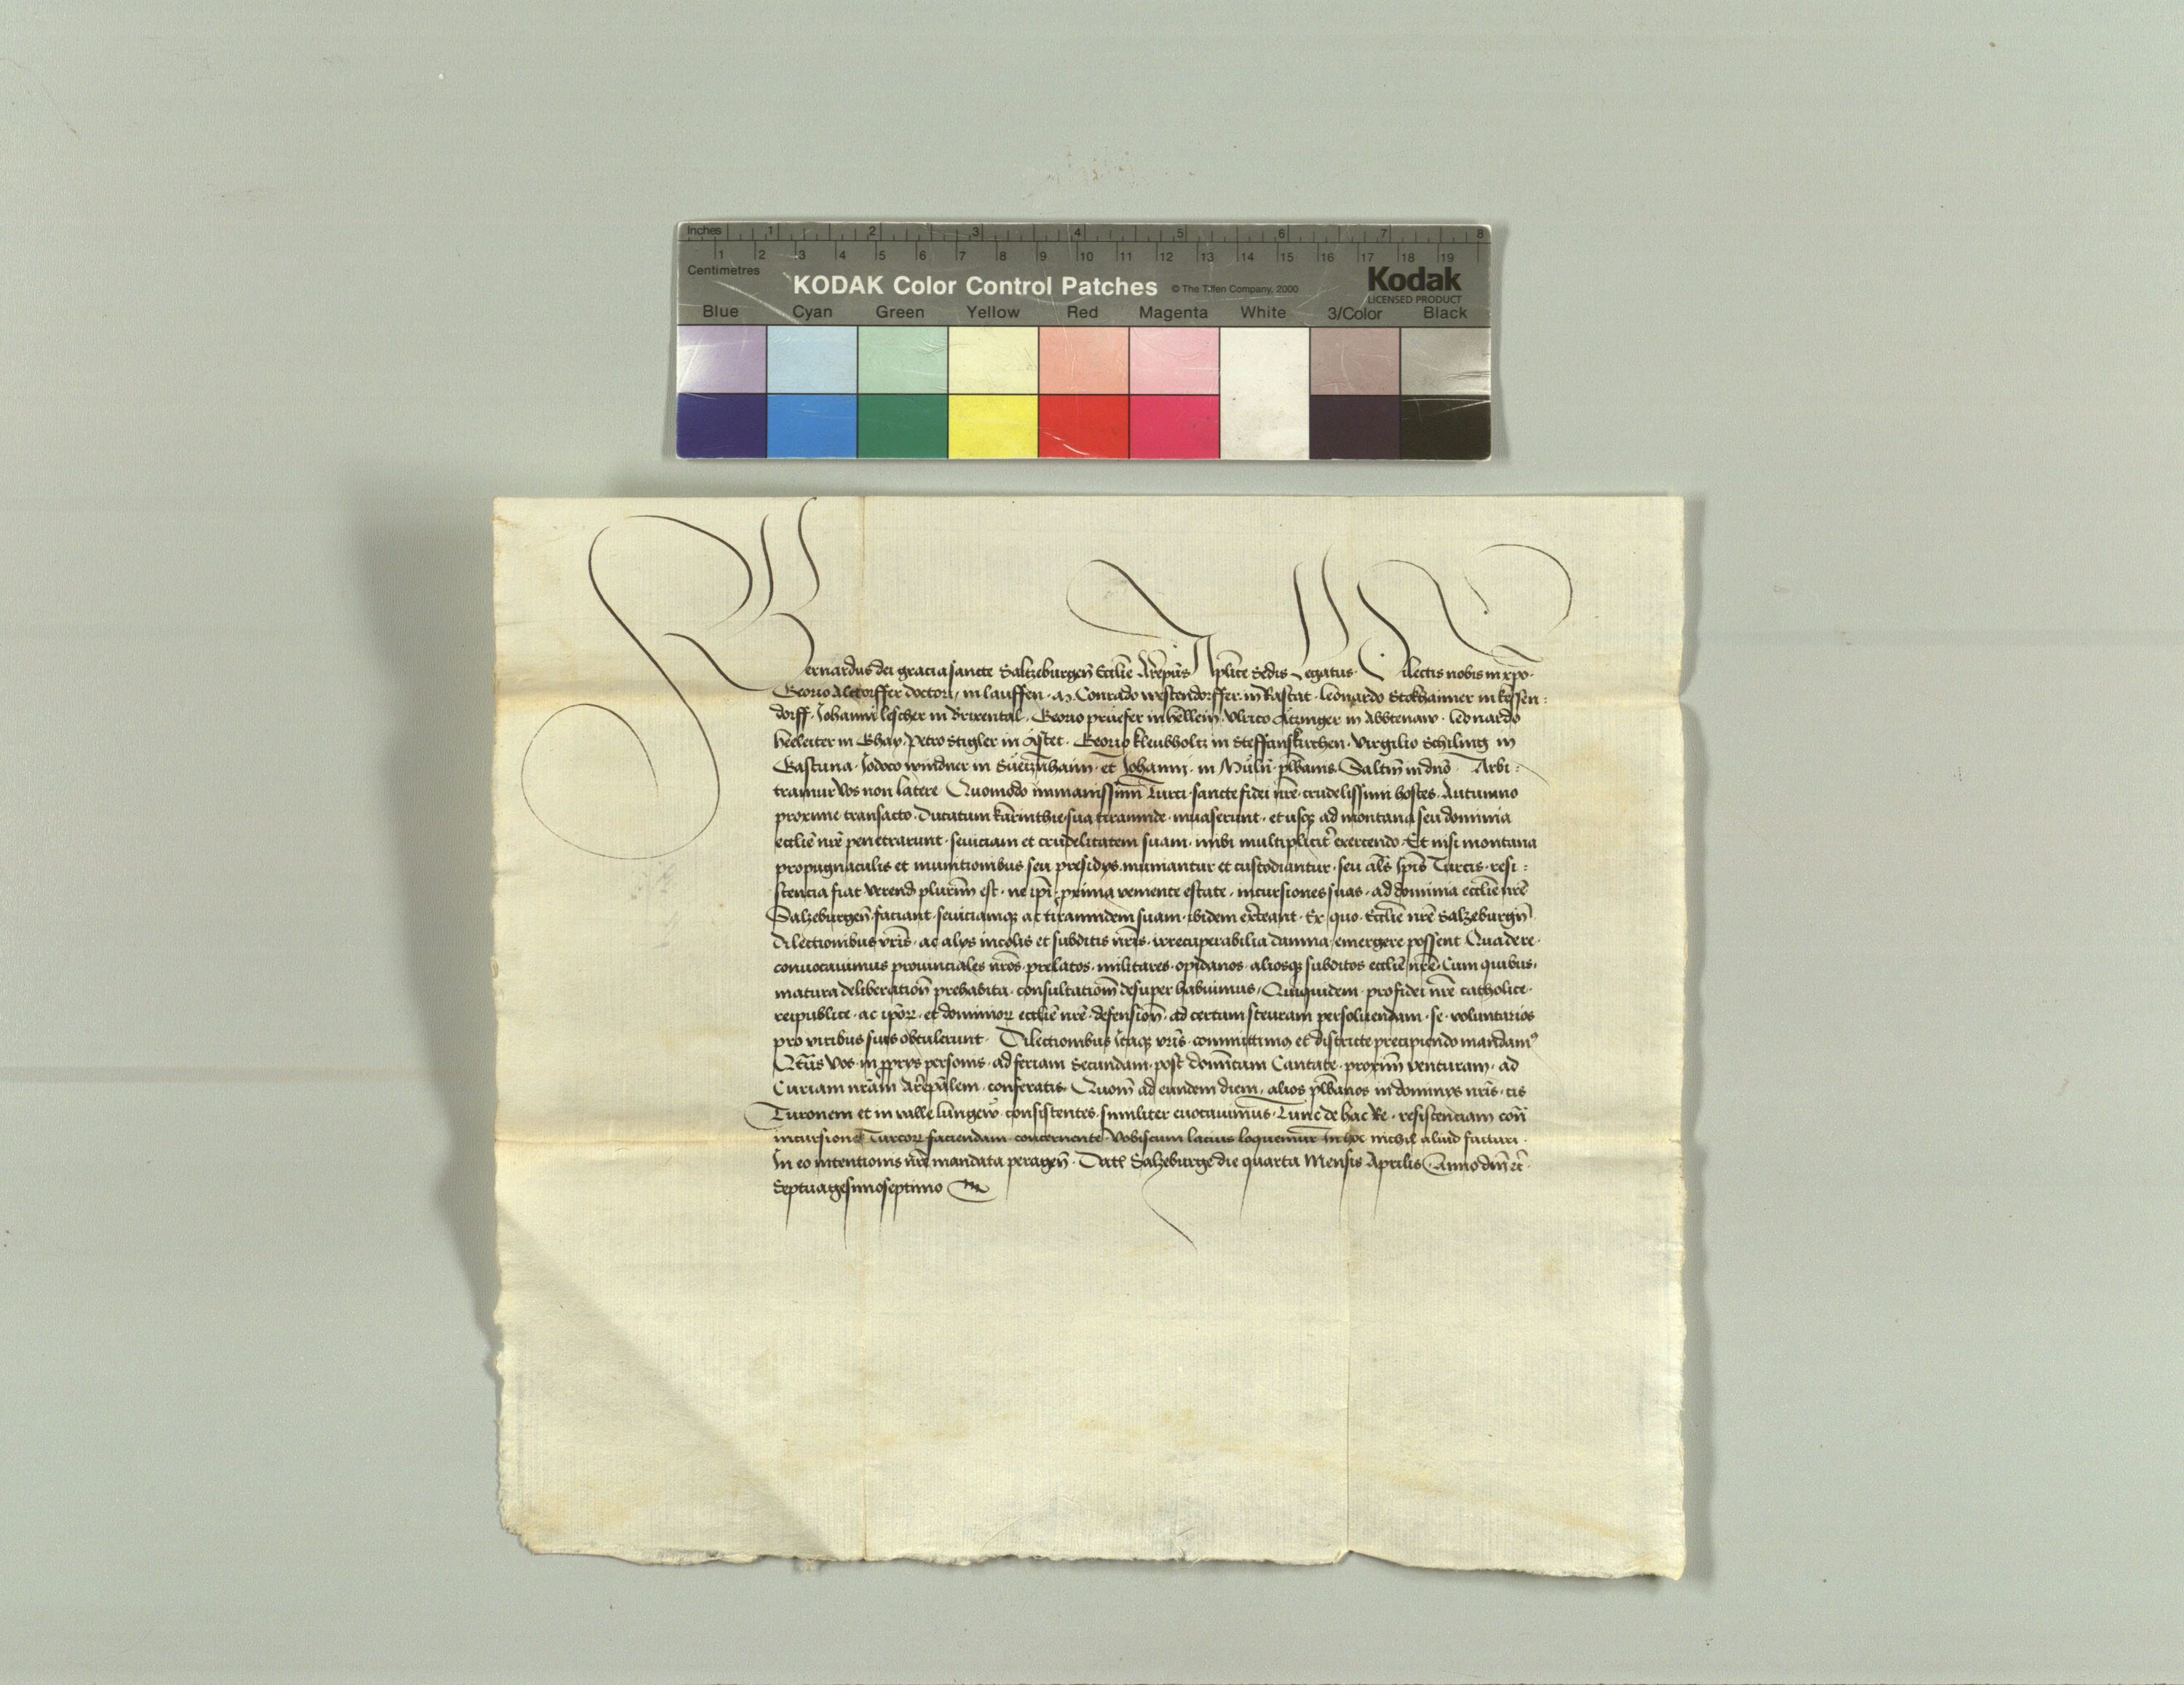 Inches 1 2 3 4 5 6 7 8
1 2 3 4 5 6 7 8 9 10 11 12 13 14 15 16 17 18 19
Centimetres
KODAK Color Control Patches © The Tiffen Company, 2000 Kodak
LICENSED PRODUCT
Blue Cyan Green Yellow Red Magenta White 3/Color Black
Bernardus dei gracia sancte Saltzeburgen̄ Eccliē Arēpus̄ Aplice Sedis Legatus · Dilectis nobis in xp̄o ·
Georio Altorffer doctori / in lauffen · Conrado westendorffer · in Rastat · leonardo Stokhaimer in kessen :
dorff · Johanni lescher in Brixental · Georio pruefer in hellein · Vlrico Aczinger in Abbtenaw · leonardo
in Ghay · Petro Stigler in Astet · Georio kleubholtz in Steffanskirchen · Virgilio Schiling in
Gastuna · Jodoco windner in et Johanni · in Müln · plb̄anis Saltm̄ in dnō Arbi :
tramur vos non latere Quomodo inmanissimi Turci · sancte fidei nr̄e · crudelissimi hostes · Autumno
proxime transacto · Ducatum karinthie · sua tirannide · inuaserunt · et usq; ad montana seu dominia
eccliē nr̄e penetrarunt · seuiciam et crudelitatem suam · inibi multiplicit̄ exercendo · Et nisi montana
propugnaculis et munitionibus seu presidys · muniantur et custodiantur · seu al̄s Ip̄is Turcis · resi :
stencia fiat verend plurim̄ est · ne ip̄i proxima veniente estate · incursiones suas · ad dominia eccliē nr̄e
Salzeburgen̄ · faciant · seuiciamq; ac tirannidem suam · ibidem exerceant · Ex quo · Eccliē nr̄e Salzeburgn̄
Dilectionibus vr̄is · ac alys incolis et subditis nr̄is · irrecuperabilia damna · emergere possent Qua de re ·
conuocauimus prouinciales nr̄os · prelatos · militares · opidanos · aliosq; subditos eccliē nr̄e · Cum quibus ·
matura deliberation̄ prehabita · consultatiom̄ desuper habuimus / Quiquidem · pro fidei nr̄e catholice ·
reipublice · ac ip̄oꝝ · et dominioꝝ eccliē nr̄e · defension̄ · ad certam steuram persoluendam · se · voluntarios
pro viribus suis obtulerunt · Dilectionibus Itaq; vr̄is · committimus et districte precipiendo mandamꝰ
Qtus̄ vos · in pprys personis · ad feriam Secundam · post domīcam Cantate · proxim̄ venturam · ad
Curiam nr̄am Arēpalem · conferatis · Quom̄ ad eundem diem · alios plb̄anos in dominys nr̄is · cis
Turonem et in valle lungew · consistentes · similiter euocauimus · Tunc de hac Re · resistenciam con̄
incursiones Turcoꝝ faciendam concernente · Vobiscum lacius loquemur In hoc nichil aliud facturi ·
In eo intentionis nr̄e mandata peragen̄ · Dat̄ Salzeburge die quarta Mensis Aprilis Anno dm̄ ec̄ ·
Septuagesimoseptimo